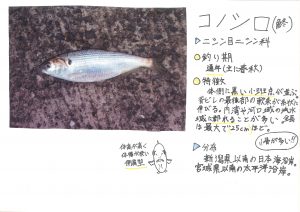 コノシロ(鮗)
▷ニシン目ニシン科
◎釣り期
通年(主に春秋)
◎特徴
体側に黒い小斑点が並ぶ。
背ビレの最後部の軟条が糸状に
伸びる。内湾や河口域の汽水
域で釣れることが多い。全長
は最大で25cmほど。
小骨が多い!!
体高が高く
体幅が狭い
側扁型
▷分布
新潟県以南の日本海沿岸。
宮城県以南の太平洋沿岸。